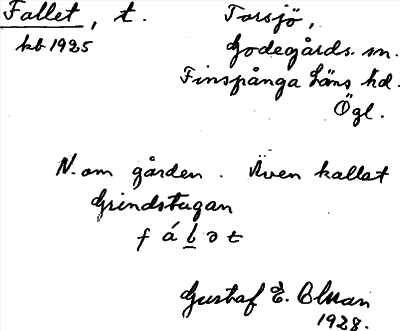 Fallet, t. Torsjö,
kb 1925 Godegårds. sn.
Finspånga Läns hd.
Ögl.
N. om gården. Även kallat
Grindstugan
f á l ə t
Gustaf E.
1928.